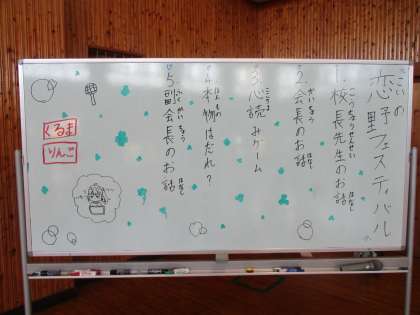 こいの
恋野フェスティバル
こうちょうせんせい はなし
1.校長先生のお話
かいちょう はなし
2.会長のお話
こころよ
3.心読みゲーム
ほんもの
4.本物はだれ?
ふくかいちょう はなし
5.副会長のお話
くるま
りんご